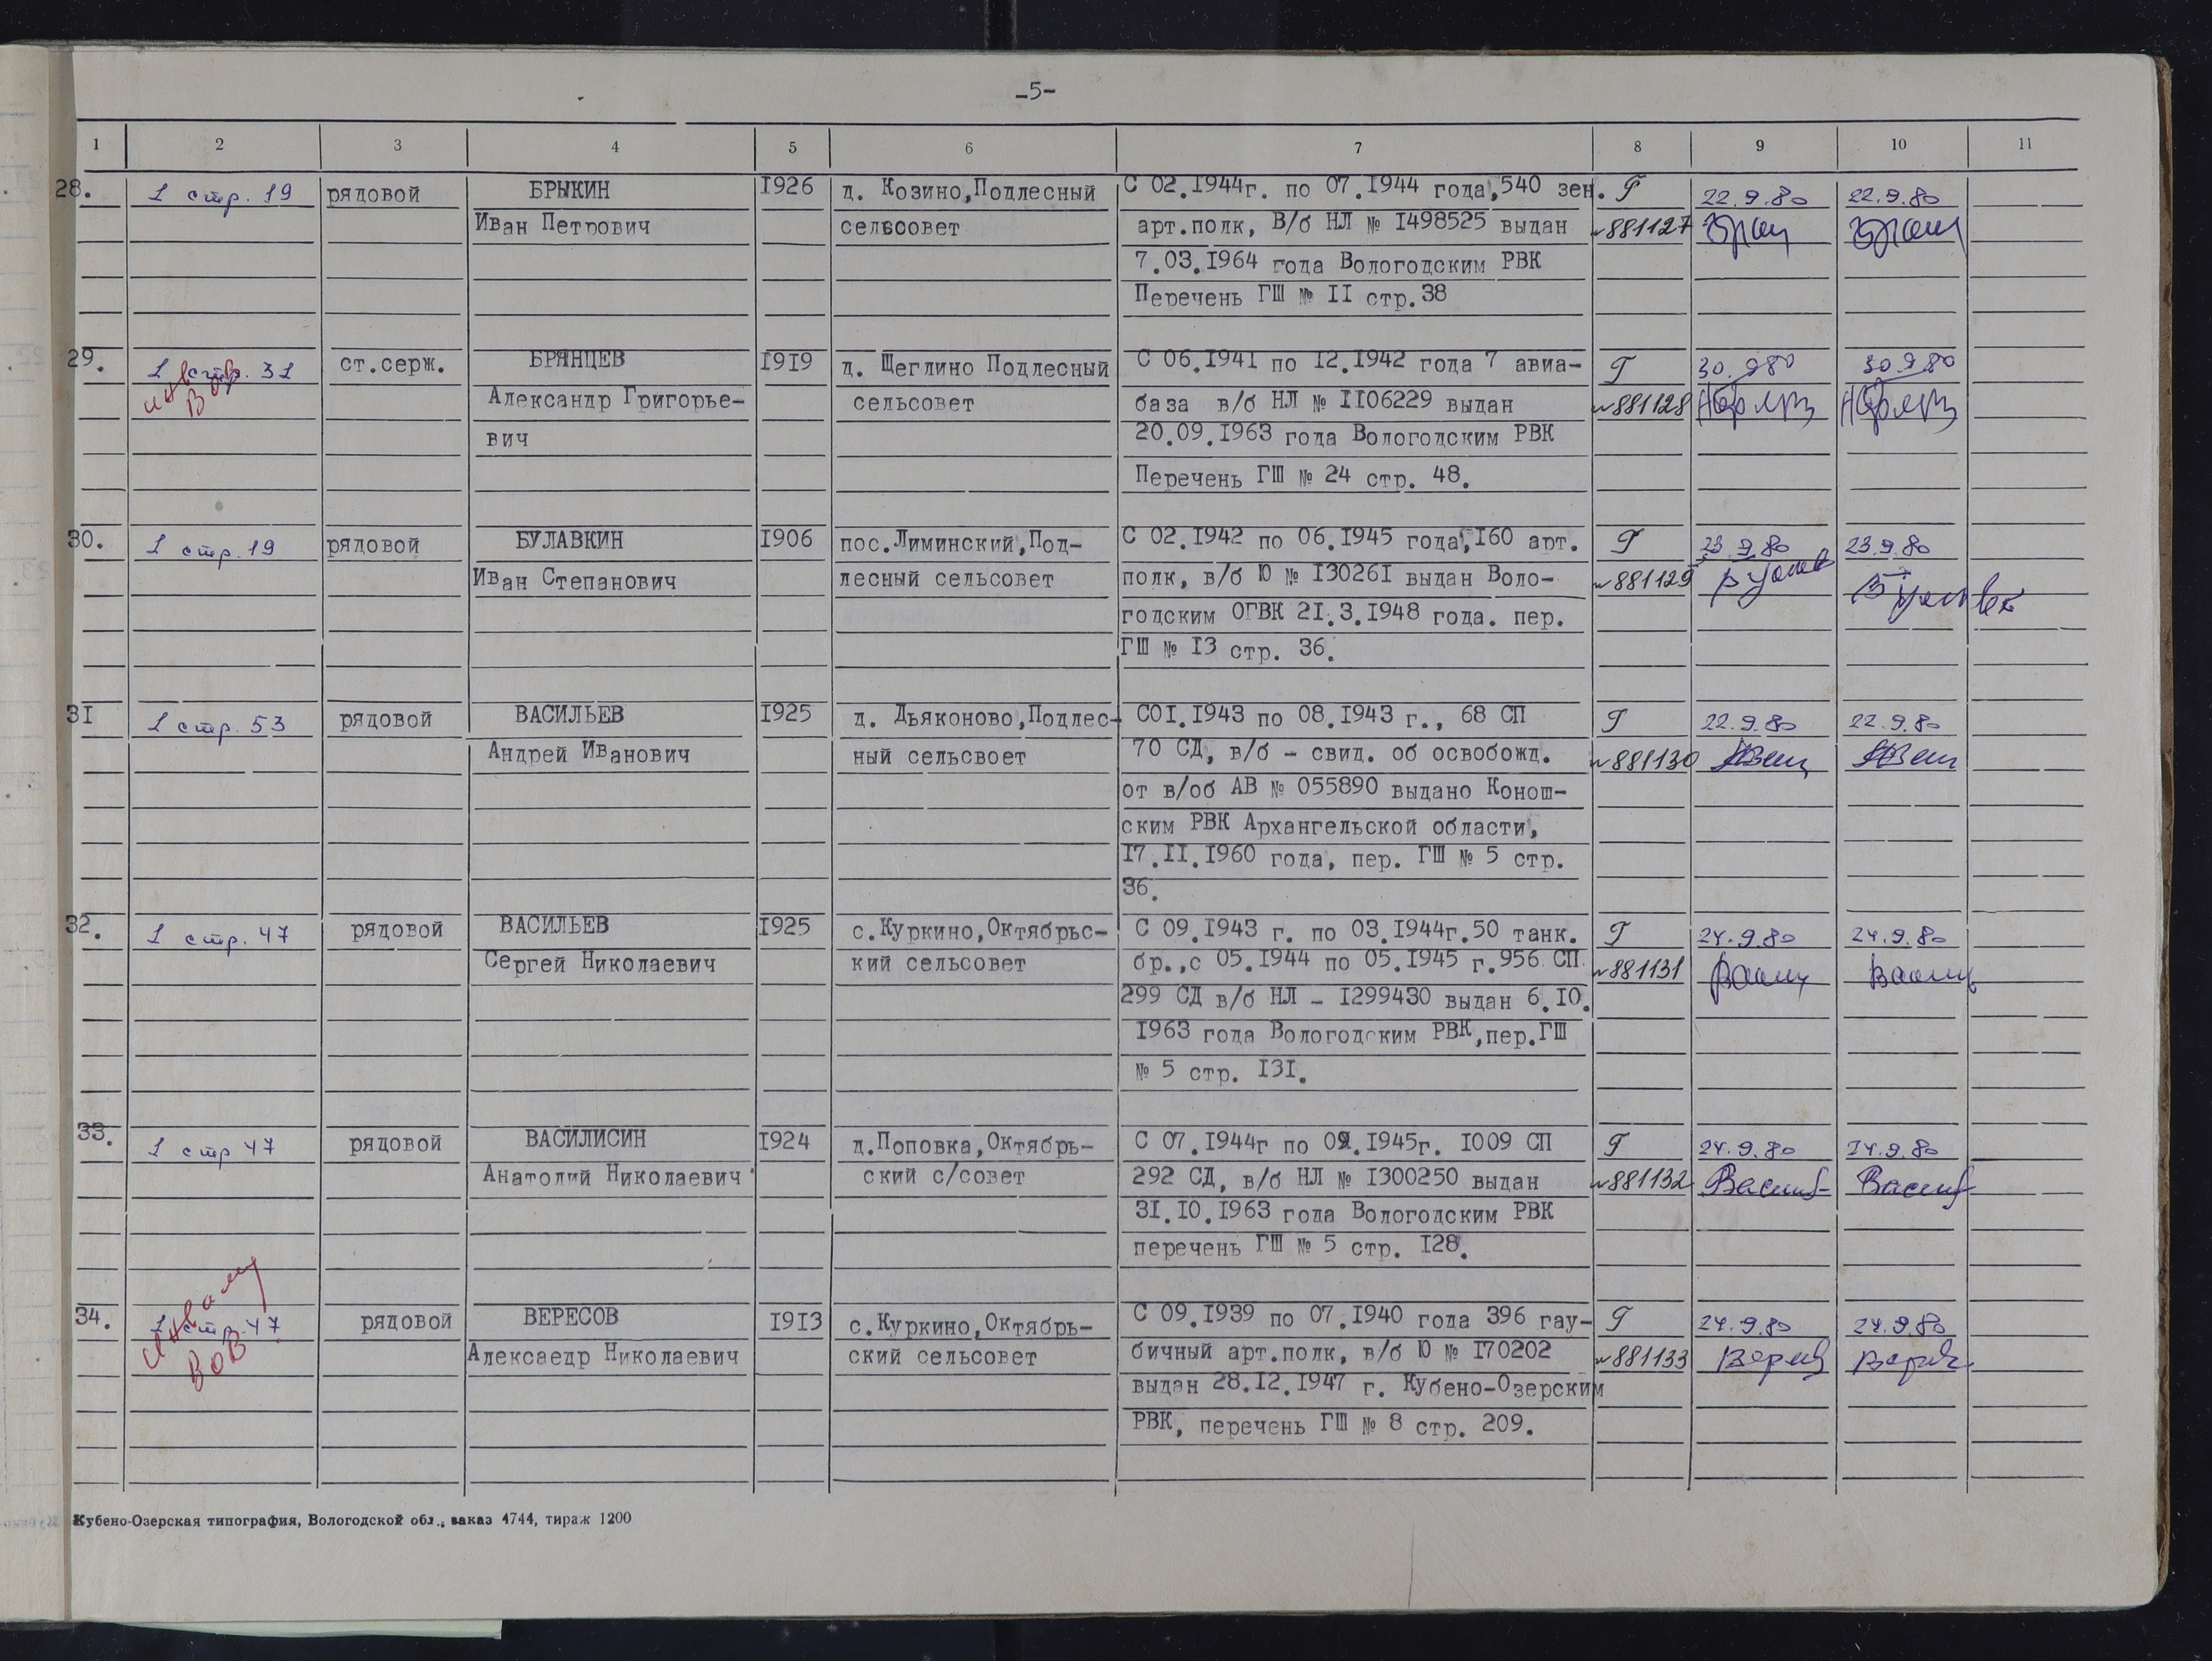 -5-
1 2 3 4 5 6 7 8 9 10 11
28. 1 стр. 19 рядовой БРЫКИН 1926 д. Козино,Подлесный С 02.1944г. по 07.1944 года,540 зен. Г 22.9.80 22.9.80
Иван Петрович сельсовет арт.полк, В/б НЛ № 1498525 выдан №881127
7.03.1964 года Вологодским РВК
Перечень ГШ № II стр.38
29. 1 стр. 31 ст.серж. БРЯНЦЕВ 1919 д. Щеглино Подлесный С 06.1941 по 12.1942 года 7 авиа- Г 30.9.80 30.9.80
инв ВОВ Александр Григорье- сельсовет база в/б НЛ № 1106229 выдан №881128
вич 20.09.1963 года Вологодским РВК
Перечень ГШ № 24 стр. 48.
30. 1 стр. 19 рядовой БУЛАВКИН 1906 пос.Лиминский,Под- С 02.1942 по 06.1945 года,160 арт. Г 23.9.80 23.9.80
Иван Степанович лесный сельсовет полк, в/б Ю № 130261 выдан Воло- №881129
годским ОГВК 21.3.1948 года. пер.
ГШ № 13 стр. 36.
31 1 стр. 53 рядовой ВАСИЛЬЕВ 1925 д. Дьяконово,Подлес- С01.1943 по 08.1943 г., 68 СП Г 22.9.80 22.9.80
Андрей Иванович ный сельсвоет 70 СД, в/б - свид. об освобожд. №881130
от в/об АВ № 055890 выдано Конош-
ским РВК Архангельской области,
17.II.1960 года, пер. ГШ № 5 стр.
36.
32. 1 стр. 47 рядовой ВАСИЛЬЕВ 1925 с.Куркино,Октябрьс- С 09.1943 г. по 03.1944г.50 танк. Г 24.9.80 24.9.80
Сергей Николаевич кий сельсовет бр.,с 05.1944 по 05.1945 г.956 СП №881131
299 СД в/б НЛ - 1299430 выдан 6.10.
1963 года Вологодским РВК,пер.ГШ
№ 5 стр. 131.
33. 1 стр 47 рядовой ВАСИЛИСИН 1924 д.Поповка,Октябрь- С 07.1944г по 02.1945г. 1009 СП Г 24.9.80 24.9.80
Анатолий Николаевич ский с/совет 292 СД, в/б НЛ № 1300250 выдан №881132
31.10.1963 года Вологодским РВК
перечень ГШ № 5 стр. 128.
34. 1 стр. 47 рядовой ВЕРЕСОВ 1913 с.Куркино,Октябрь- С 09.1939 по 07.1940 года 396 гау- Г 24.9.80 24.9.80
ВОВ Алексаедр Николаевич ский сельсовет бичный арт.полк, в/б Ю № 170202 №881133
выдан 28.12.1947 г. Кубено-Озерским
РВК, перечень ГШ № 8 стр. 209.
Кубено-Озерская типография, Вологодской обл., заказ 4744, тираж 1200